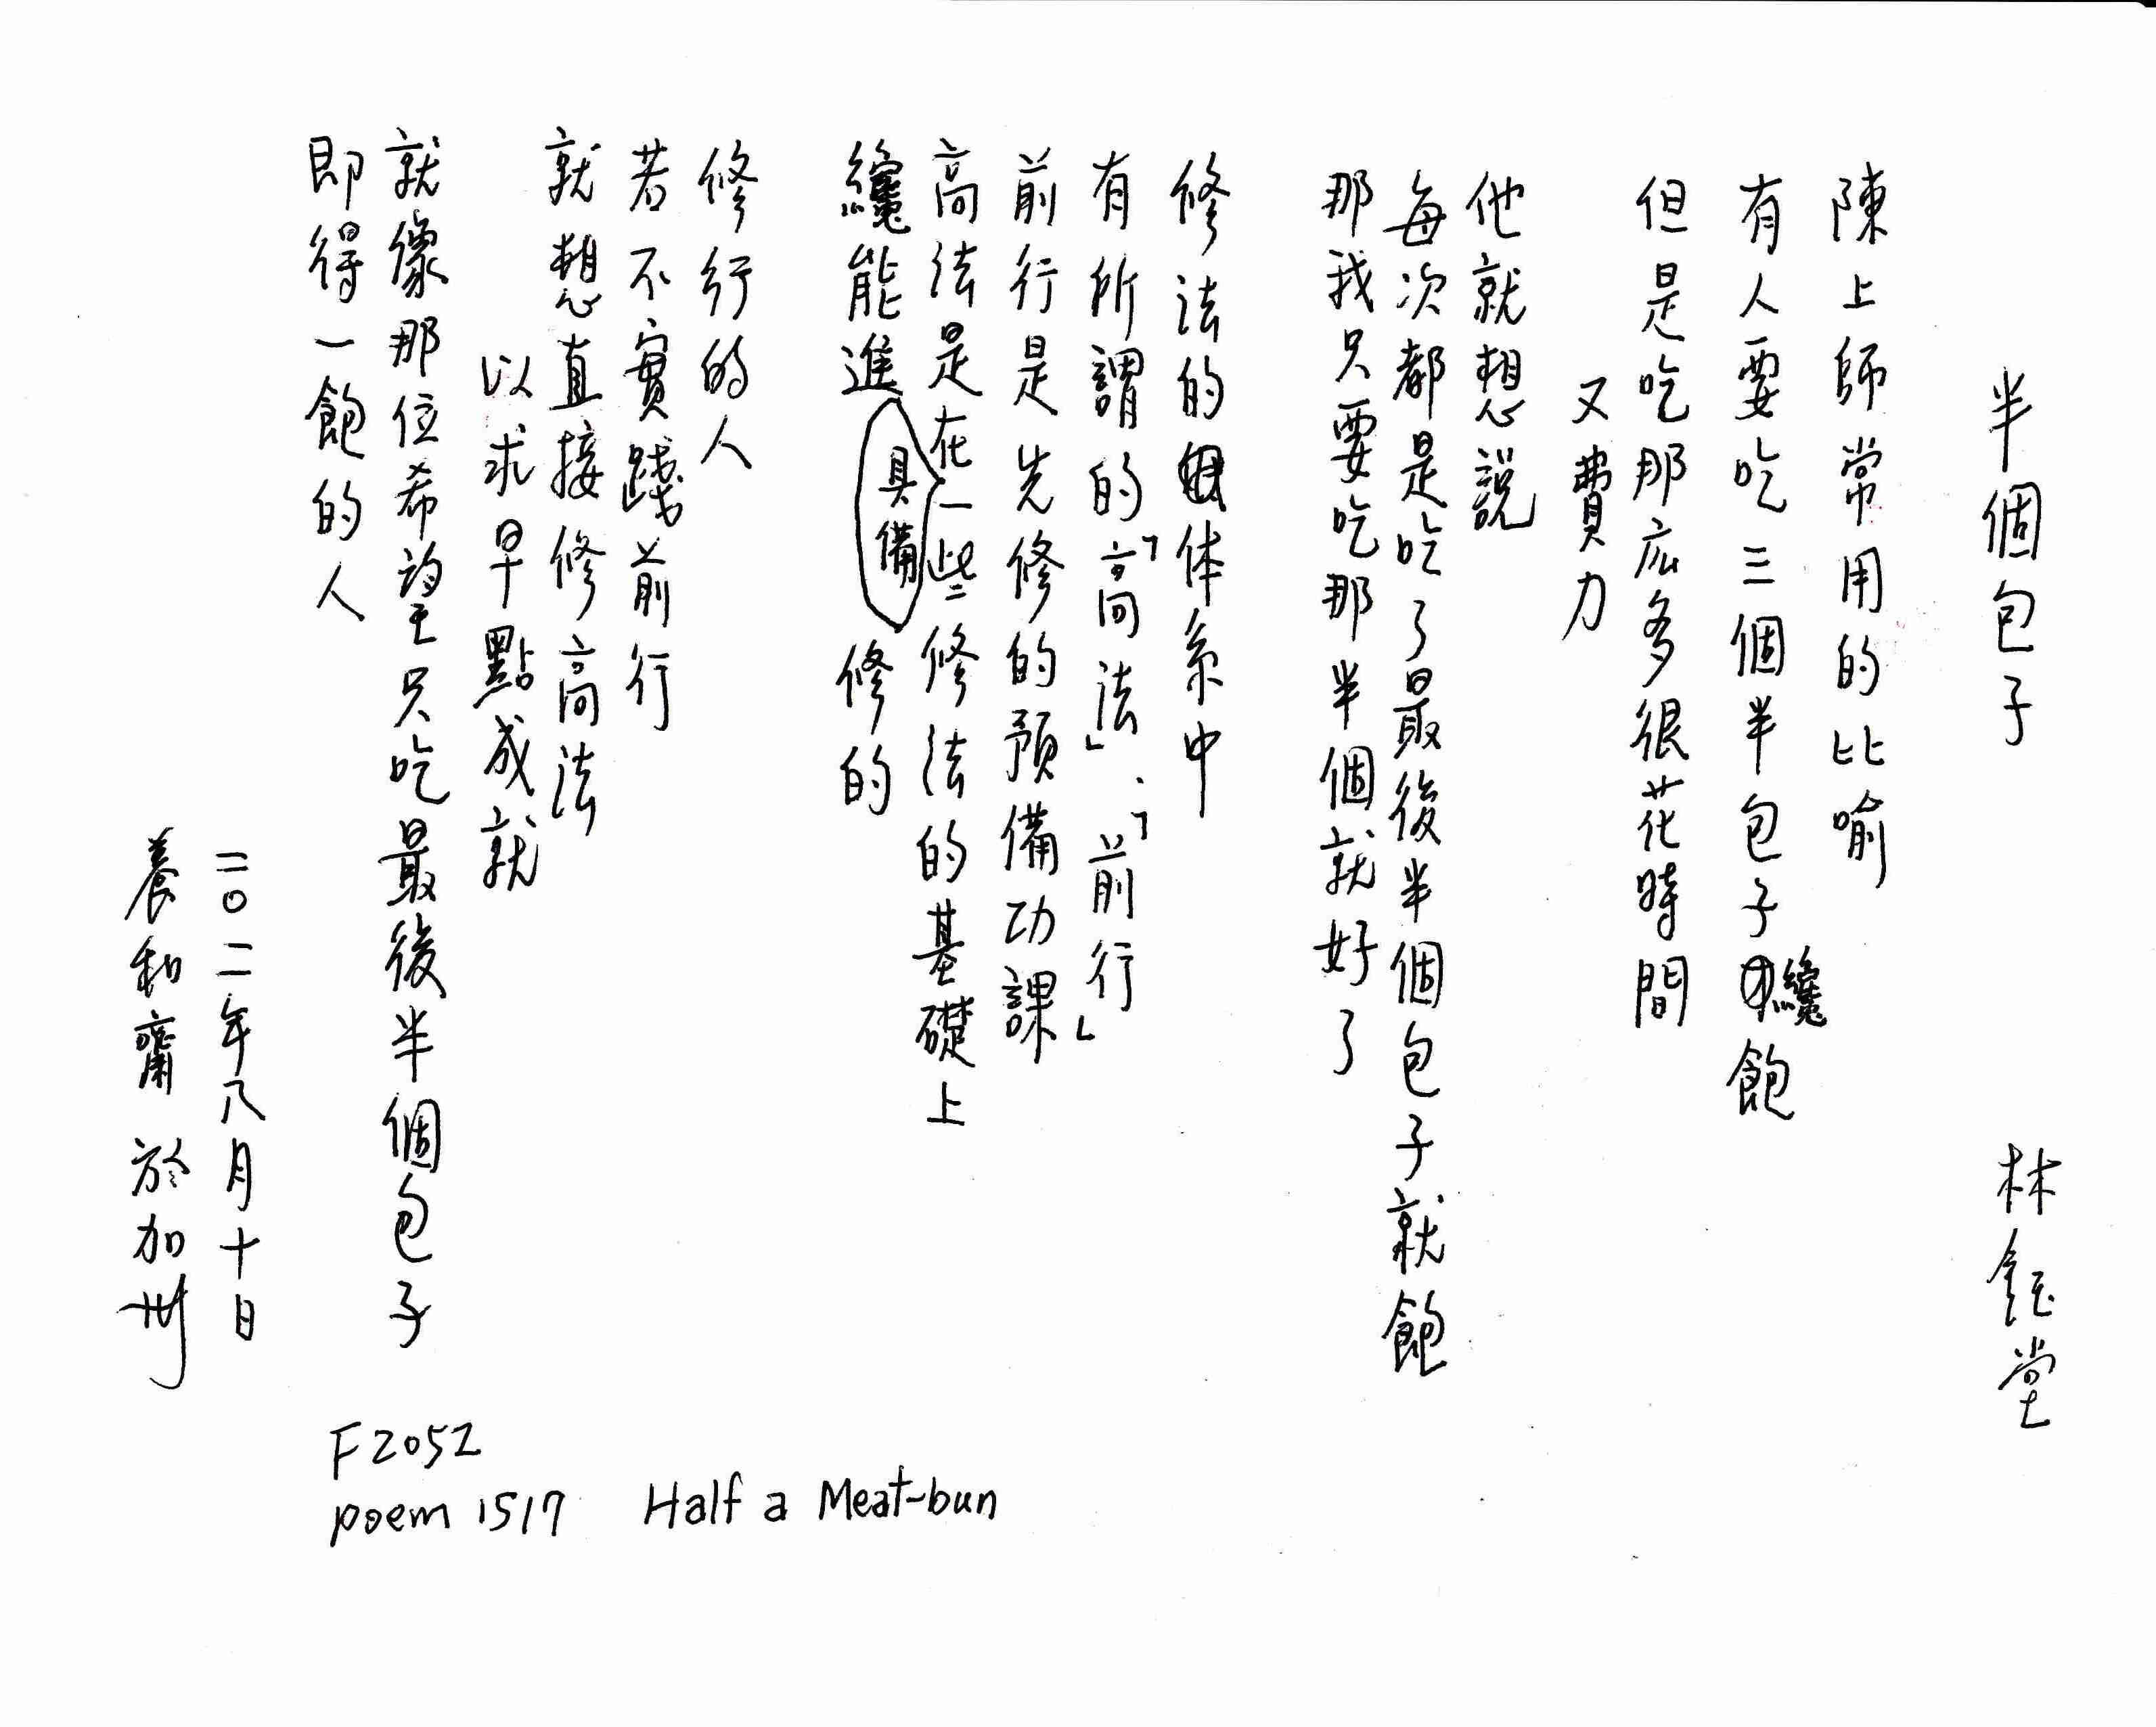 半個包子 林鈺堂
陳上師常用的比喻
有人要吃三個半包子纔飽
但是吃那庅多很花時間
又費力
他就想說
每次都是吃了最後半個包子就飽
那我只要吃那半個就好了
修法的体系中
有所謂的「高法」、「前行」
前行是先修的預備功課
高法是在具備一些修法的基礎上
纔能進修的
修行的人
若不實踐前行
就想直接修高法
以求早點成就
就像那位希望只吃最後半個包子
即得一飽的人
二〇一二年八月十日
養和齋 於加州
F2052
poem 1517 Half a Meat-bun